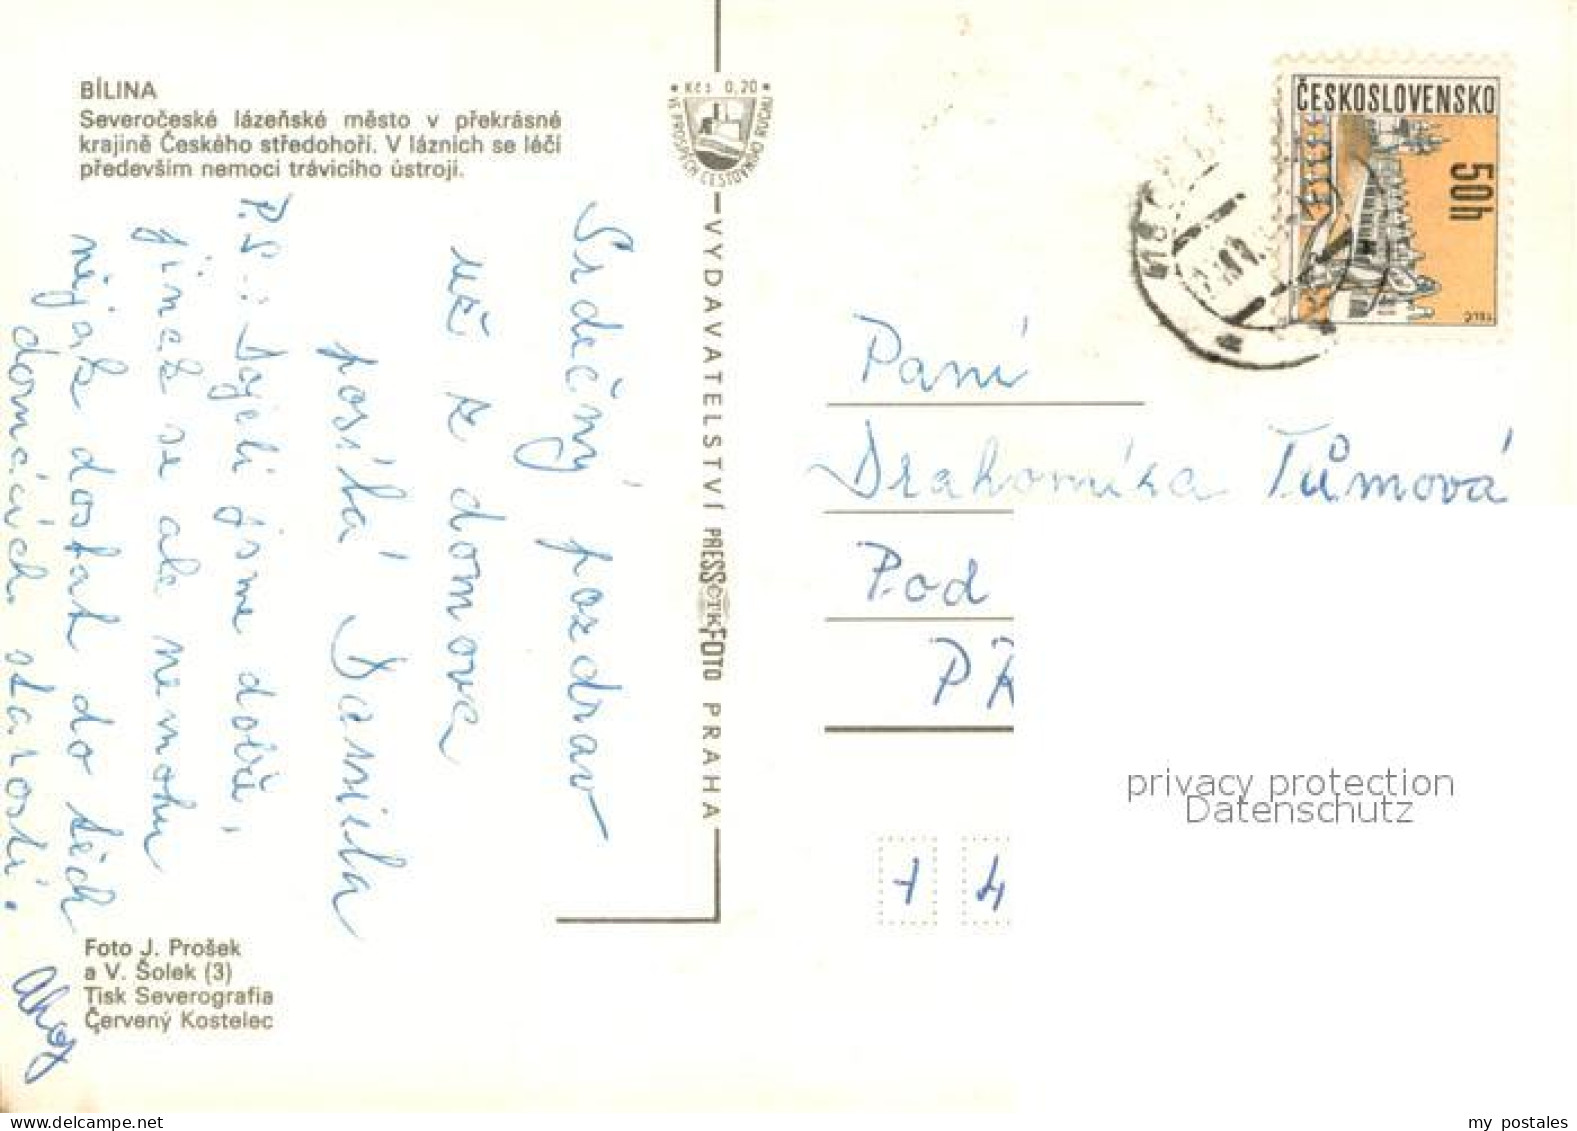 BÍLINA
Severočeské lázeňské město v překrásné
krajině Českého středohoří. V lázních se léčí
především nemoci trávicího ústrojí.
Srdečný pozdrav
už z domova
posílá Daniela
P.S.: Dojeli jsme dobře,
jinak se ale nemohu
nějak dostat do těch
domácích starostí.
Ahoj
Foto J. Prošek
a V. Šolek (3)
Tisk Severografia
Červený Kostelec
Kčs 0,20
VE PROSPĚCH CESTOVNÍHO RUCHU
VYDAVATELSTVÍ PRESSFOTO PRAHA
ČTK
ČESKOSLOVENSKO
50h
TELČ
Paní
Drahomíra Tůmová
Pod
PŘ
privacy protection
Datenschutz
my postales